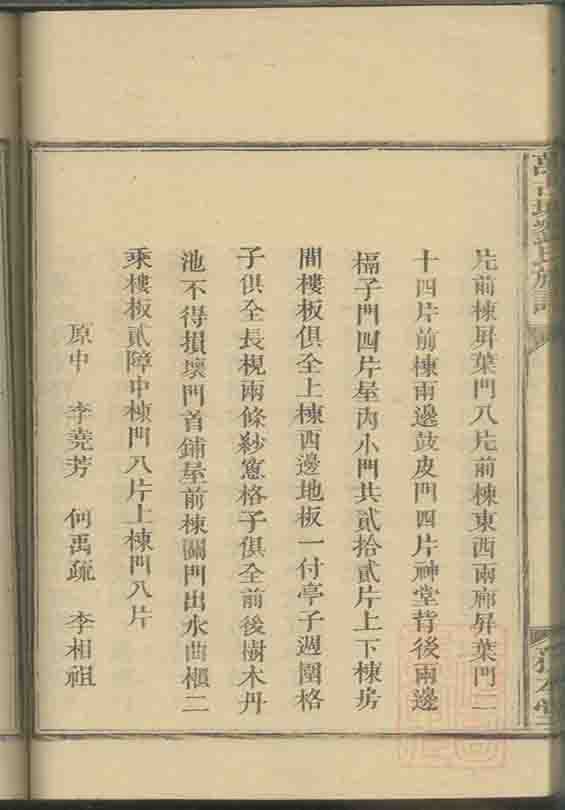 片前棟屏葉門八片前棟東西兩廊屏葉門二
十四片前棟兩邊鼓皮門四片神堂背後兩邊
槅子門四片屋內小門共貳拾貳片上下棟房
間樓板俱全上棟西邊地板一付亭子週圍格
子俱全長梘兩條紗窻格子俱全前後樹木丹
池不得損壞門首鋪屋前棟關門出水曲梘二
乘樓板貳障中棟門八片上棟門八片
原中 李堯芳 何禹疏 李相祖